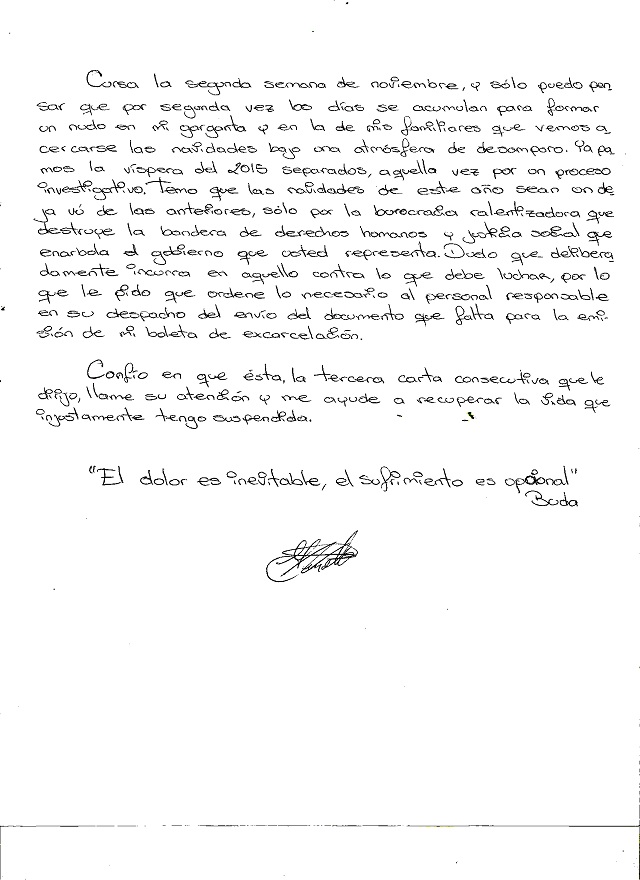 Cursa la segunda semana de noviembre, y sólo puedo pen
sar que por segunda vez los días se acumulan para formar
un nudo en mi garganta y en la de mis familiares que vemos a
cercarse las navidades bajo una atmósfera de desamparo. Ya pa
mos la víspera del 2015 separados, aquella vez por un proceso
investigativo. Temo que las navidades de este año sean un de
ja vú de las anteriores, sólo por la burocracia ralentizadora que
destruye la bandera de derechos humanos y justicia social que
enarbola el gobierno que usted representa. Dudo que delibera
damente incurra en aquello contra lo que debe luchar, por lo
que le pido que ordene lo necesario al personal responsable
en su despacho del envío del documento que falta para la emi-
sión de mi boleta de excarcelación.
Confío en que ésta, la tercera carta consecutiva que le
dirijo, llame su atención y me ayude a recuperar la vida que
injustamente tengo suspendida.
"El dolor es inevitable, el sufrimiento es opcional"
Buda